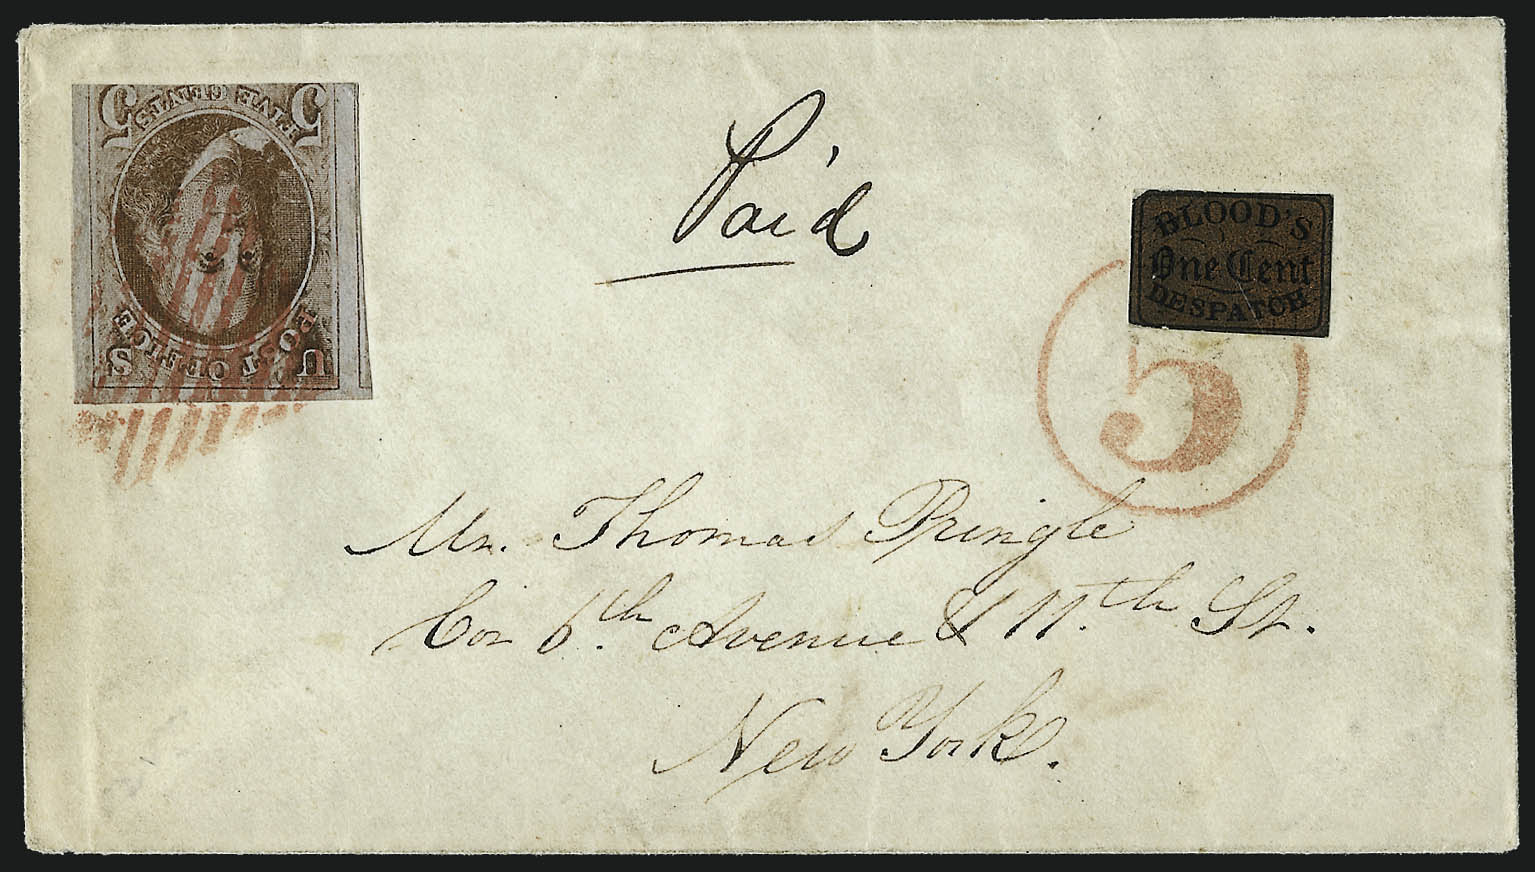 5 FIVE CENTS 5
U POST OFFICE S
Paid
BLOOD'S
One Cent
DESPATCH
5
Mr. Thomas Pringle
Cor 6.th Avenue & 11.th St.
New York.